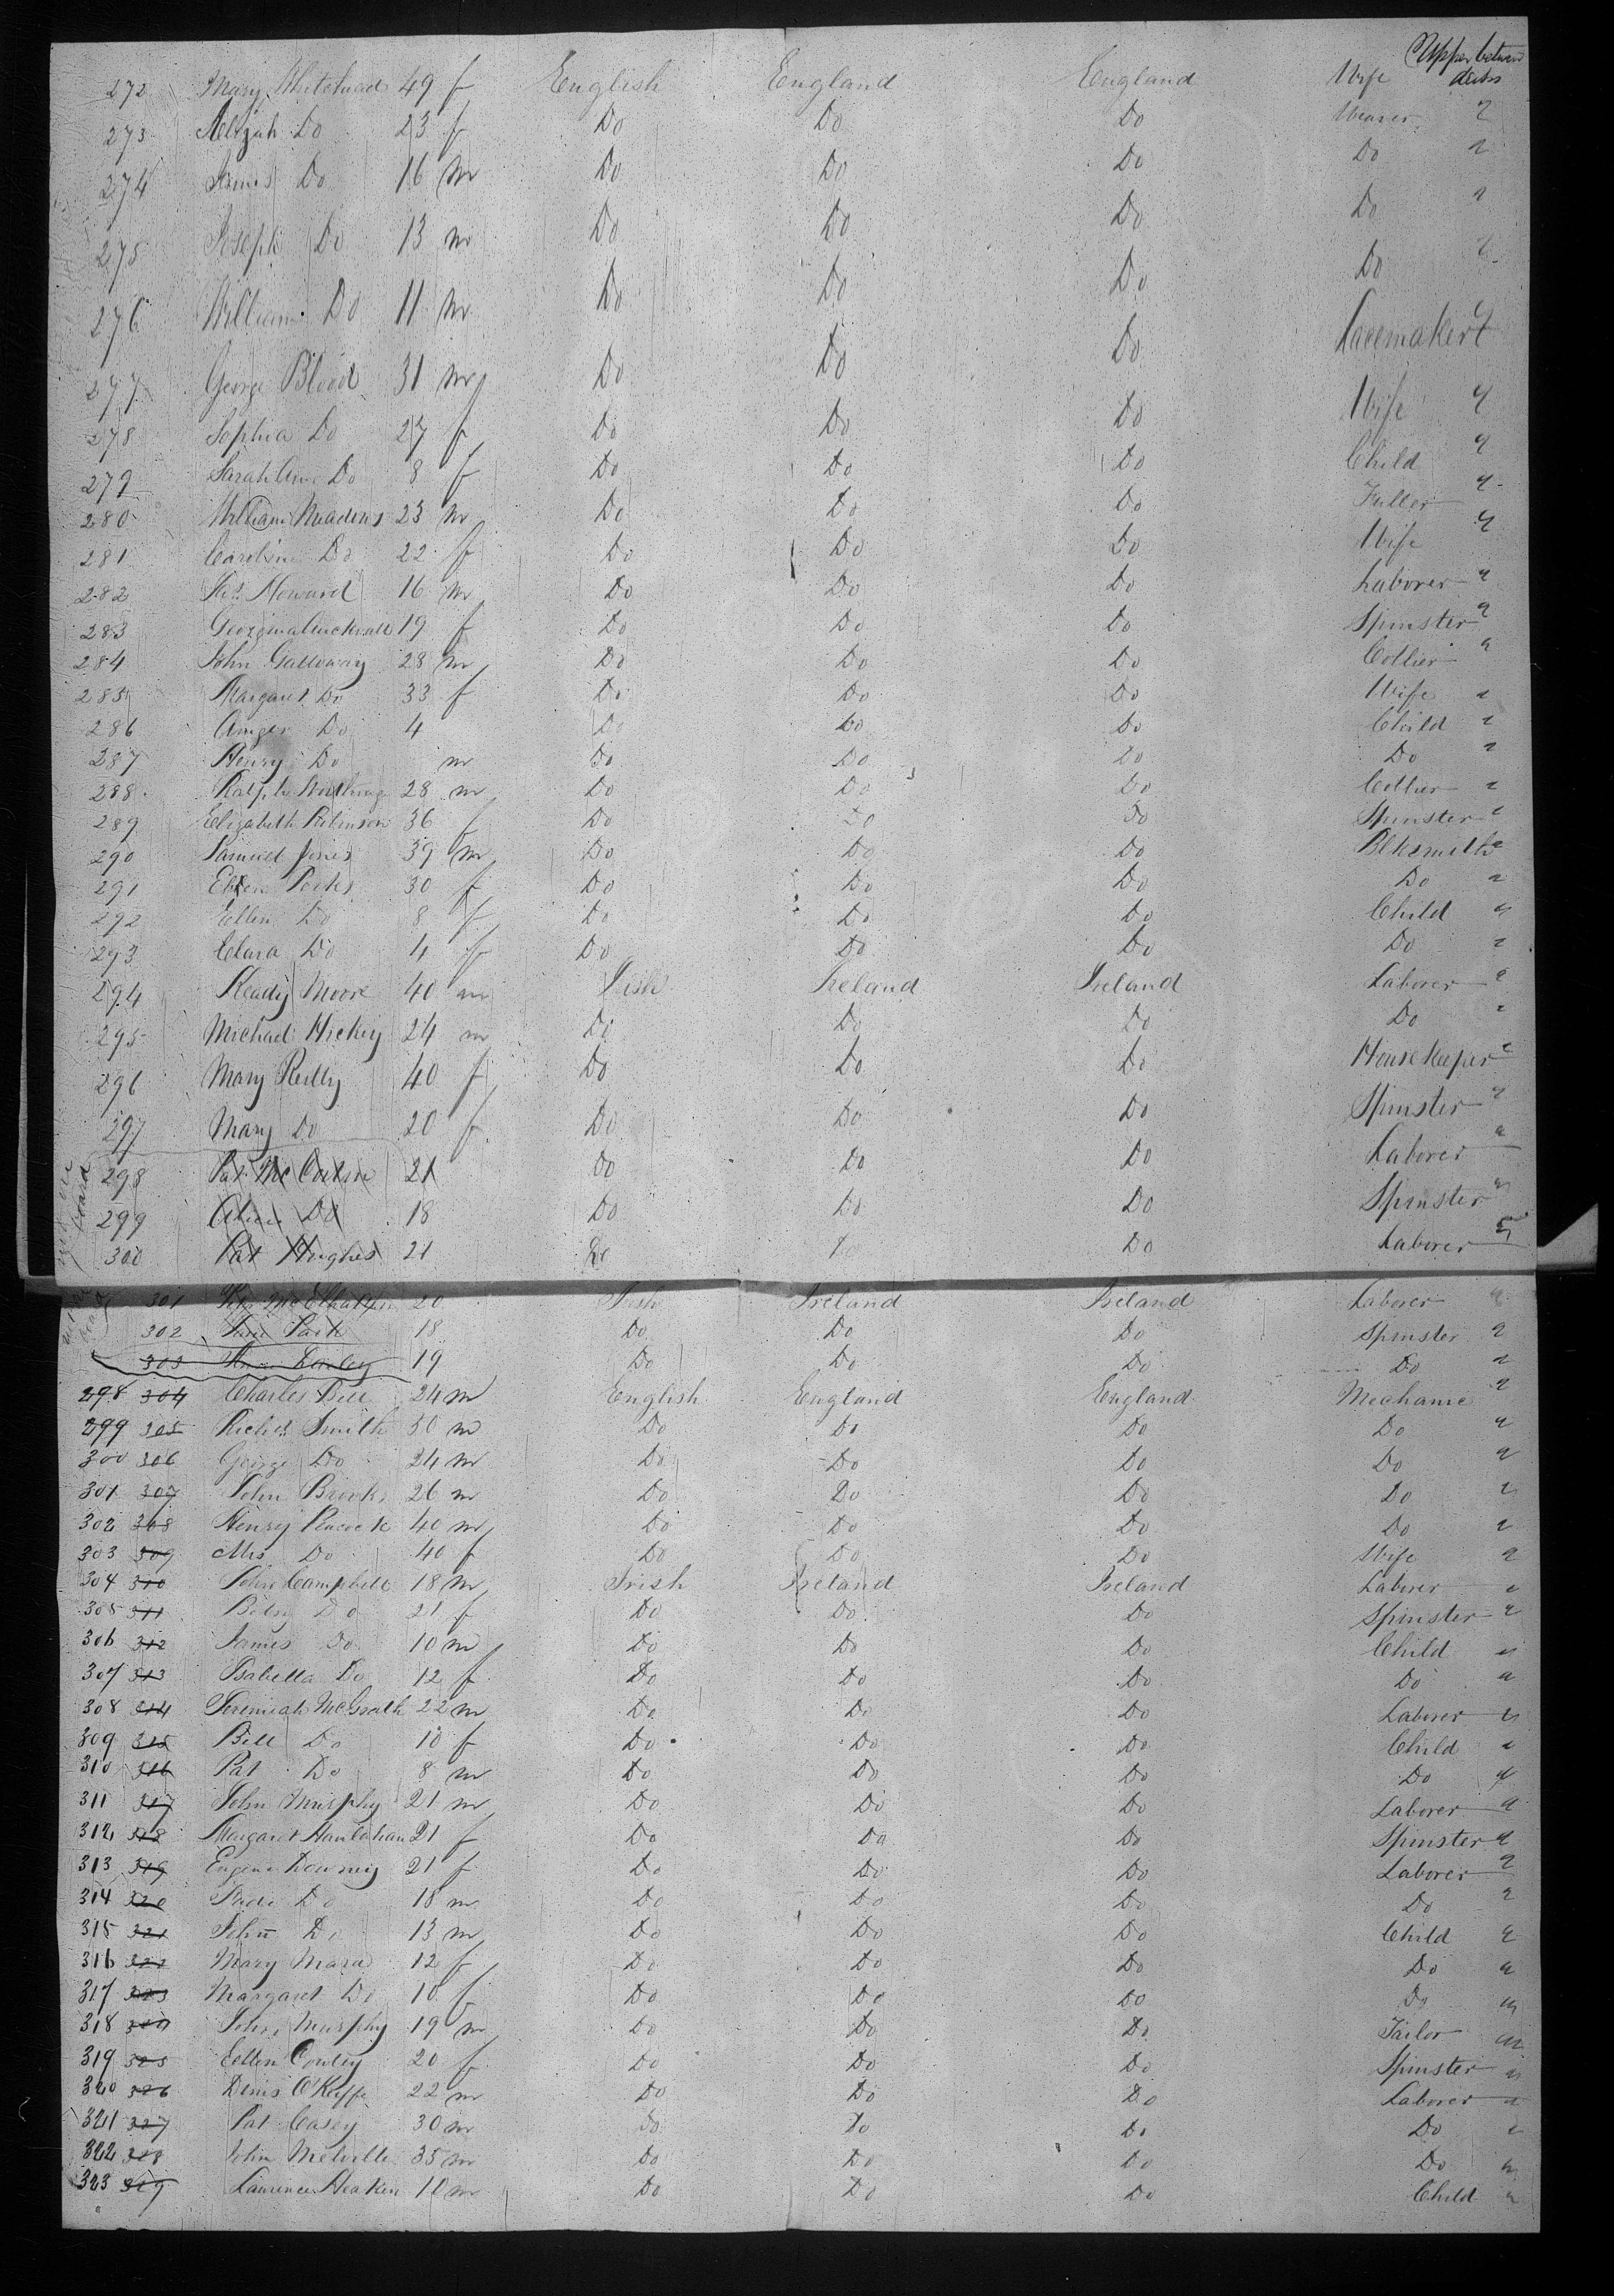 Upper between decks
272 Mary Whitehead 49 f English England England Wife
273 Do 23 f Do Do Do Weaver "
274 James Do 16 m Do Do Do Do "
275 Joseph Do 13 m Do Do Do Do "
276 William Do 11 m Do Do Do Do "
277 George Blood 31 m Do Do Do Lacemaker "
278 Sophia Do 27 f Do Do Do Wife "
279 Sarah Ann Do 8 f Do Do Do Child "
280 William Meadens 23 m Do Do Do Fuller "
281 Caroline Do 22 f Do Do Do Wife "
282 Howard 16 m Do Do Do Laborer "
283 Georgina 19 f Do Do Do Spinster "
284 John Galloway 28 m Do Do Do Collier "
285 Margaret Do 33 f Do Do Do Wife "
286 Do 4 Do Do Do Child "
287 Henry Do m Do Do Do Do "
288 Ralph 28 m Do Do Do Collier "
289 Elizabeth Robinson 36 f Do Do Do Spinster "
290 Samuel Jones 39 m Do Do Do Blksmith "
291 Ellen 30 f Do Do Do Do "
292 Ellen Do 8 f Do Do Do Child "
293 Clara Do 4 f Do Do Do Do "
294 Ready Moore 40 m Irish Ireland Ireland Laborer "
295 Michael Hickey 24 m Do Do Do Do "
296 Mary Reilly 40 f Do Do Do Housekeeper "
297 Mary Do 20 f Do Do Do Spinster "
not on board
298 Pat 21 Do Do Do Laborer "
299 Alice Do 18 Do Do Do Spinster "
300 Pat Hughes 21 Do Do Do Laborer "
not on board
301 20 Irish Ireland Ireland Laborer "
302 18 Do Do Do Spinster "
303 19 Do Do Do Do "
298 304 Charles Bell 24 m English England England Mechanic "
299 305 Richd Smith 30 m Do Do Do Do "
300 306 George Do 24 m Do Do Do Do "
301 307 John Brooks 26 m Do Do Do Do "
302 308 Henry Peacock 40 m Do Do Do Do "
303 309 Mrs Do 40 f Do Do Do Wife "
304 310 John Campbell 18 m Irish Ireland Ireland Laborer "
305 311 Betsy Do 21 f Do Do Do Spinster "
306 312 James Do 10 m Do Do Do Child "
307 313 Isabella Do 12 f Do Do Do Do "
308 314 Jeremiah McGrath 22 m Do Do Do Laborer "
309 315 Bill Do 10 f Do Do Do Child "
310 316 Pat Do 8 m Do Do Do Do "
311 317 John Murphy 21 m Do Do Do Laborer "
312 318 Margaret Hanlahan 21 f Do Do Do Spinster "
313 319 Eugene Downey 21 f Do Do Do Laborer "
314 320 Do 18 m Do Do Do Do "
315 321 John Do 13 m Do Do Do Child "
316 322 Mary Mara 12 f Do Do Do Do "
317 323 Margaret Do 10 f Do Do Do Do "
318 324 John Murphy 19 m Do Do Do Tailor "
319 325 Ellen Cowley 20 f Do Do Do Spinster "
320 326 Denis O'Keiffe 22 m Do Do Do Laborer "
321 327 Pat Casey 30 m Do Do Do Do "
322 328 John Melville 35 m Do Do Do Do "
323 329 Laurence Heaken 10 m Do Do Do Child "